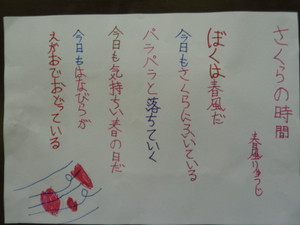 さくらの時間
春風りゅうじ
ぼくは春風だ
今日もさくらにふいている
パラパラと落ちていく
今日も気持ちい春の日だ
今日もはなびらが
えがおでおどっている